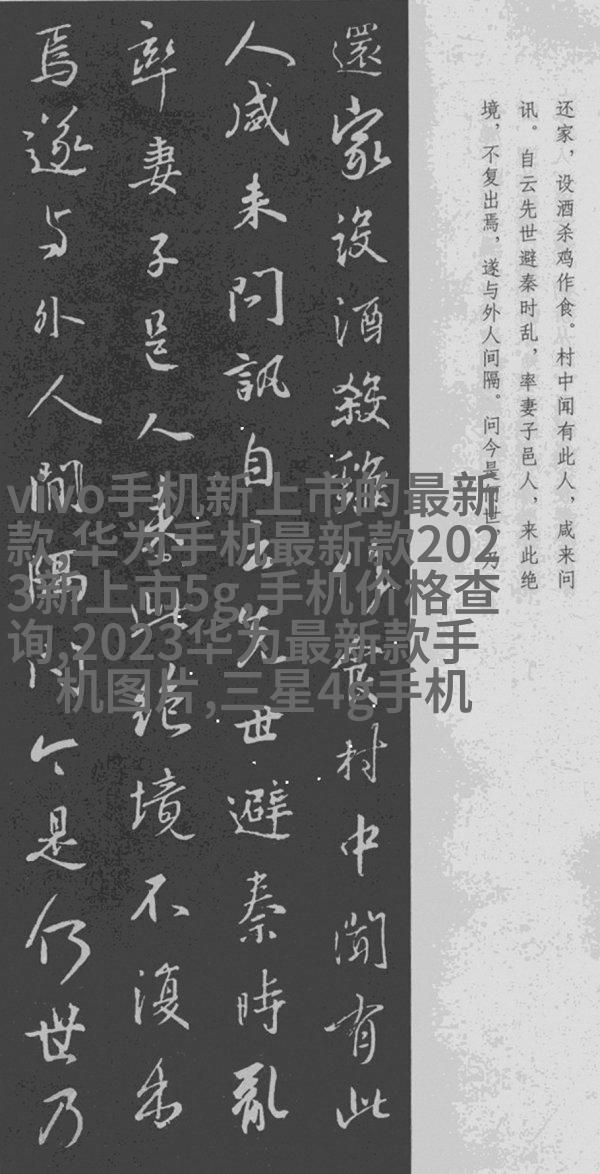 还家，设酒杀鸡作食。村中闻有此人，咸来问
讯。自云先世避秦时乱，率妻子邑人，来此绝
境，不复出焉，遂与外人间隔。问今是何世，乃
還家設酒殺雞作食村中聞有此
人咸来問訊自云先世避秦時亂
率妻子邑人来此絶境不復出
焉遂与外人間隔問今是何世乃
vivo手机新上市的最新
款,华为手机最新款202
3新上市5g,手机价格查
询,2023华为最新款手
机图片,三星4g手机